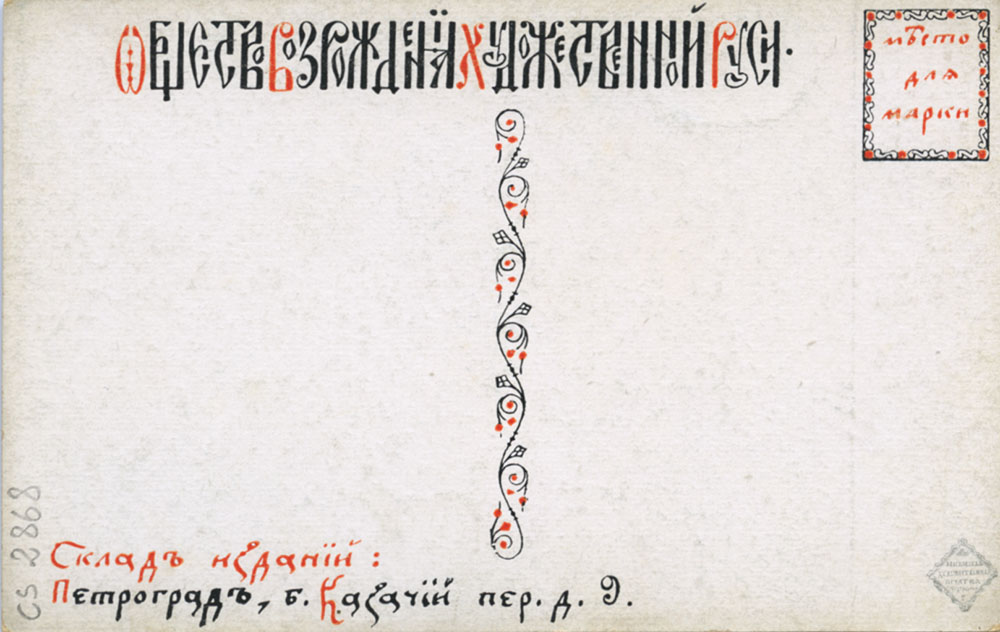 Общество Возрожденія Художественной Руси.
мѣсто
для
марки
Складъ изданій:
Петроградъ, б. Казачій пер. д. 9.
CS 2868